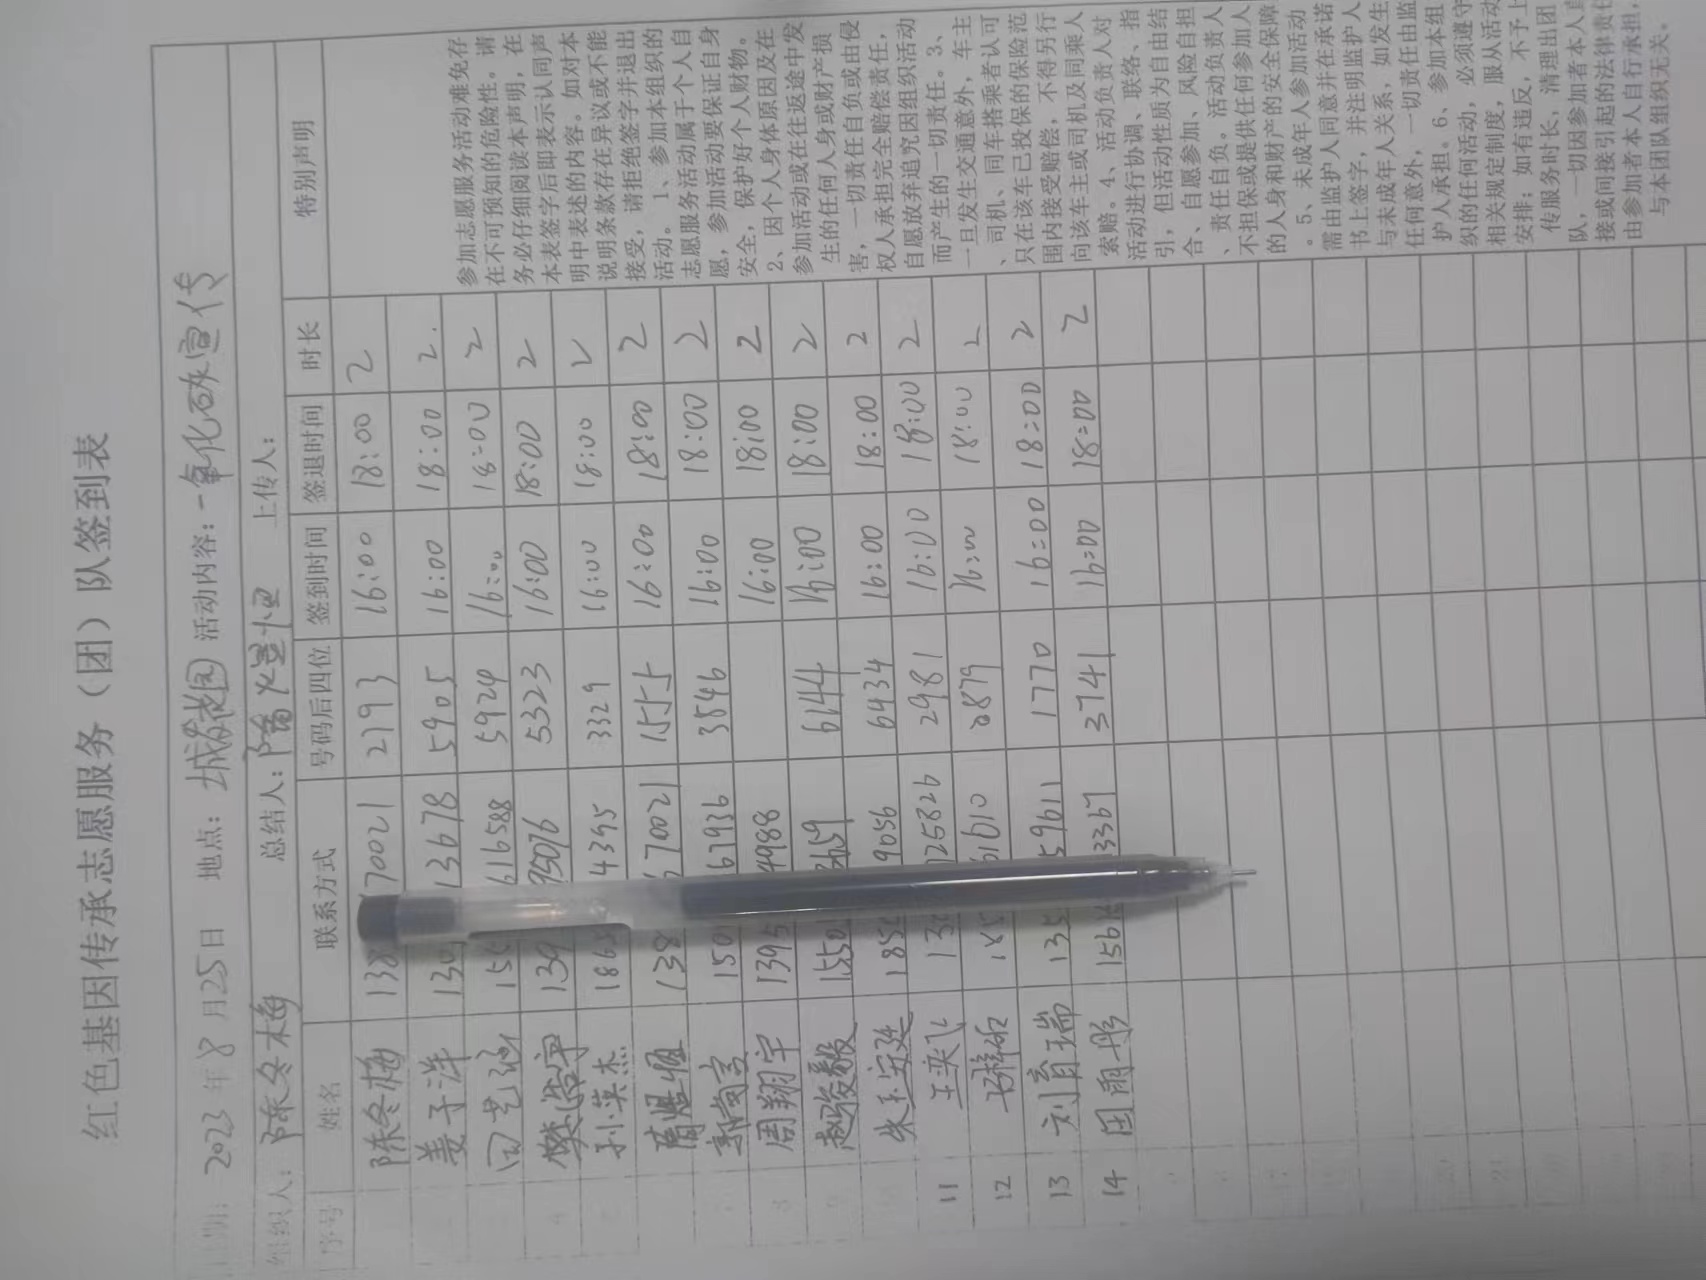 红色基因传承志愿服务（团）队签到表
日期：2023年8月25日 地点：城发花园 活动内容：一氧化碳宣传
组织人：陈冬梅 总结人： 上传人：
序号 姓名 联系方式 号码后四位 签到时间 签退时间 时长 特别声明
陈冬梅 138 70021 2193 16:00 18:00 2
姜子洋 13678 5905 16:00 18:00 2.
田艺涵 61588 5924 16:00 18:00 2
樊浩宇 139 95076 5323 16:00 18:00 2
孙英杰 186 4395 3329 16:00 18:00 2
138 70021 1555 16:00 18:00 2
150 67936 3546 16:00 18:00 2
周翔宇 1395 4988 16:00 18:00 2
赵骏毅 1550 3659 6144 16:00 18:00 2
朱玉廷 185 9056 6434 16:00 18:00 2
11 王奕飞 13 125826 2981 16:00 18:00 2
12 185 61610 2879 16:00 18:00 2
13 刘育瑞 135 59611 1770 16:00 18:00 2
14 田雨彤 1561 3361 3741 16:00 18:00 2
参加志愿服务活动难免存
在不可预知的危险性。请
务必仔细阅读本声明，在
本表签字后即表示认同声
明中表述的内容。如对本
说明条款存在异议或不能
接受，请拒绝签字并退出
活动。1、参加本组织的
志愿服务活动属于个人自
愿，参加活动要保证自身
安全，保护好个人财物。
2、因个人身体原因及在
参加活动或在往返途中发
生的任何人身或财产损
害，一切责任自负或由侵
权人承担完全赔偿责任，
自愿放弃追究因组织活动
而产生的一切责任。3、
一旦发生交通意外，车主
、司机、同车搭乘者认可
只在该车已投保的保险范
围内接受赔偿，不得另行
向该车主或司机及同乘人
索赔。4、活动负责人对
活动进行协调、联络、指
引，但活动性质为自由结
合、自愿参加、风险自担
、责任自负。活动负责人
不担保或提供任何参加人
的人身和财产的安全保障
。5、未成年人参加活动
需由监护人同意并在承诺
书上签字，并注明监护人
与未成年人关系，如发生
任何意外，一切责任由监
护人承担。6、参加本组
织的任何活动，必须遵守
相关规定制度，服从活动
安排；如有违反，不予上
传服务时长，清理出团
队，一切因参加者本人直
接或间接引起的法律责任
由参加者本人自行承担，
与本团队组织无关。